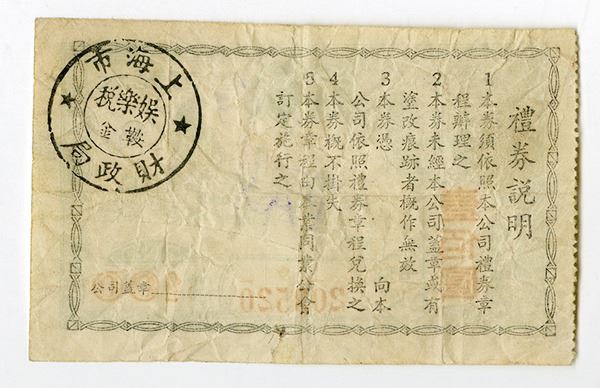 禮券說明
1 本券須依照本公司禮券章
程辦理之
2 本券未經本公司蓋章或有
塗改痕跡者概作無效
3 本券憑　　　　向本
公司依照禮券章程兌換之
4 本券概不掛失
5 本券章程由本業同業公會
訂定施行之
公司蓋章
上海市
財政局
娛樂稅